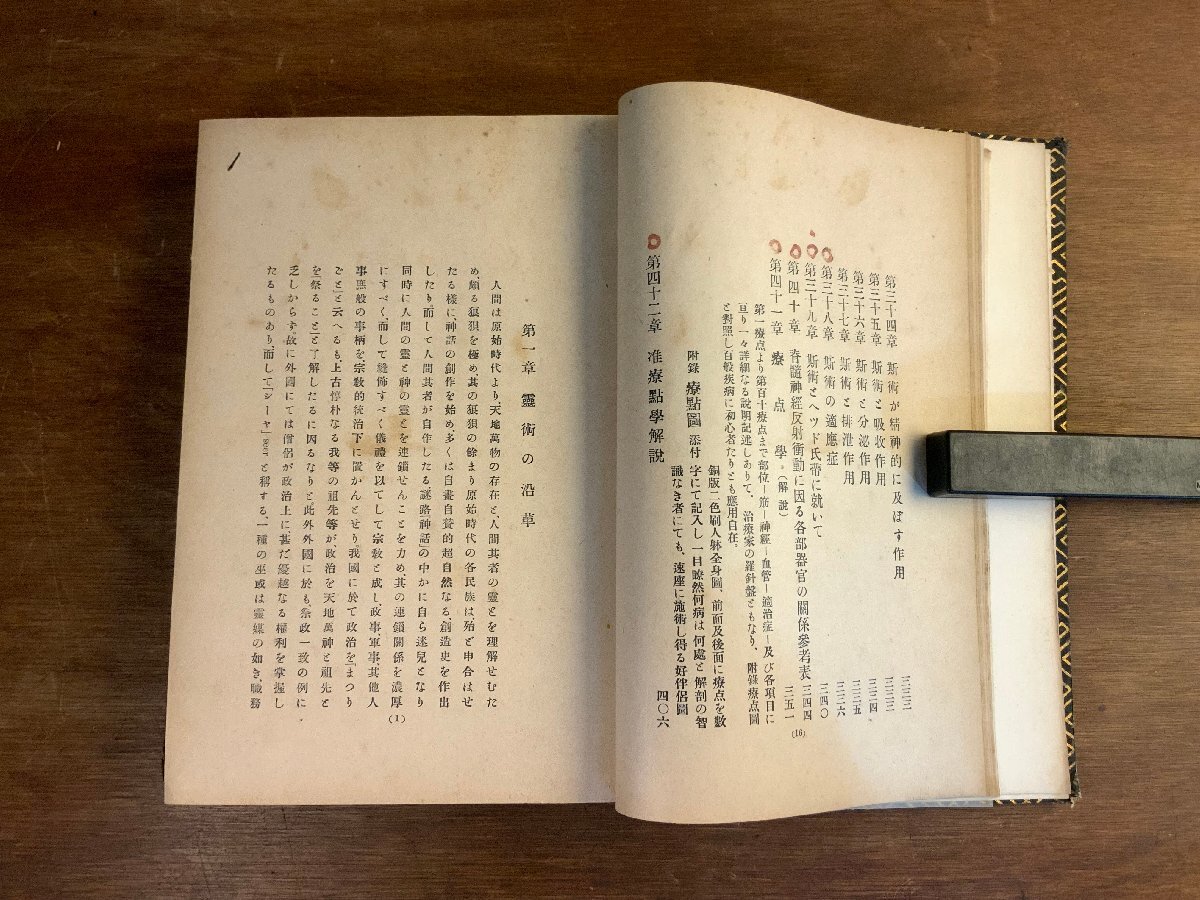 第三十四章 斯術が精神的に及ぼす作用 三三三
第三十五章 斯術と吸收作用 三三三
第三十六章 斯術と分泌作用 三三四
第三十七章 斯術と排泄作用 三三五
第三十八章 斯術の適應症 三三六
第三十九章 斯術とヘッド氏帶に就いて 三四〇
第四十章 脊髓神經反射衝動に因る各部器官の關係參考表 三四四
第四十一章 療点學(解說) 三五一
第一療点より第百十療点まで部位―筋―神經―血管―適治症―及び各項目に
亘り一々詳細なる說明記述しありて、治療家の羅針盤ともなり、附錄療点圖
と對照し百般疾病に初心者たりとも應用自在。
第四十二章 准療點學解說 四〇六
附錄 療點圖 添付
銅版二色刷人躰全身圖、前面及後面に療点を數
字にて記入し一目瞭然何病は何處と解剖の智
識なき者にても、速座に施術し得る好伴侶圖
(16)
第一章 靈術の沿革
人間は原始時代より、天地萬物の存在と、人間其者の靈とを理解せむた
め、頗る狼狽を極め、其の狼狽の餘まり原始時代の各民族は殆ど申合はせ
たる樣に、神話の創作を始め、多くは自畫自賛的超自然なる、創造史を作出
したり。而して人間其者が自作したる(謎路神話)の中かに自ら迷兒となり
同時に人間の靈と神の靈とを連鎖せんことを力め其の連鎖關係を濃厚
にすべく、而して縫飾すべく儀禮を以てして宗敎と成し、政事、軍事、其他人
事萬般の事柄を、宗敎的統治下に置かんとせり。我國に於て政治を「まつり
ごと」と云へるも、上古惇朴なる我等の祖先等が政治を天地萬神と祖先と
を「祭ること」と了解したるに因るなりと此外外國に於も、祭政一致の例に
乏しからず。故に外國にては僧侶が政治上に甚だ優越なる權利を掌握し
たるものあり、而して「シーヤ」seer と稱する一種の巫或は靈媒の如き、職務
(1)